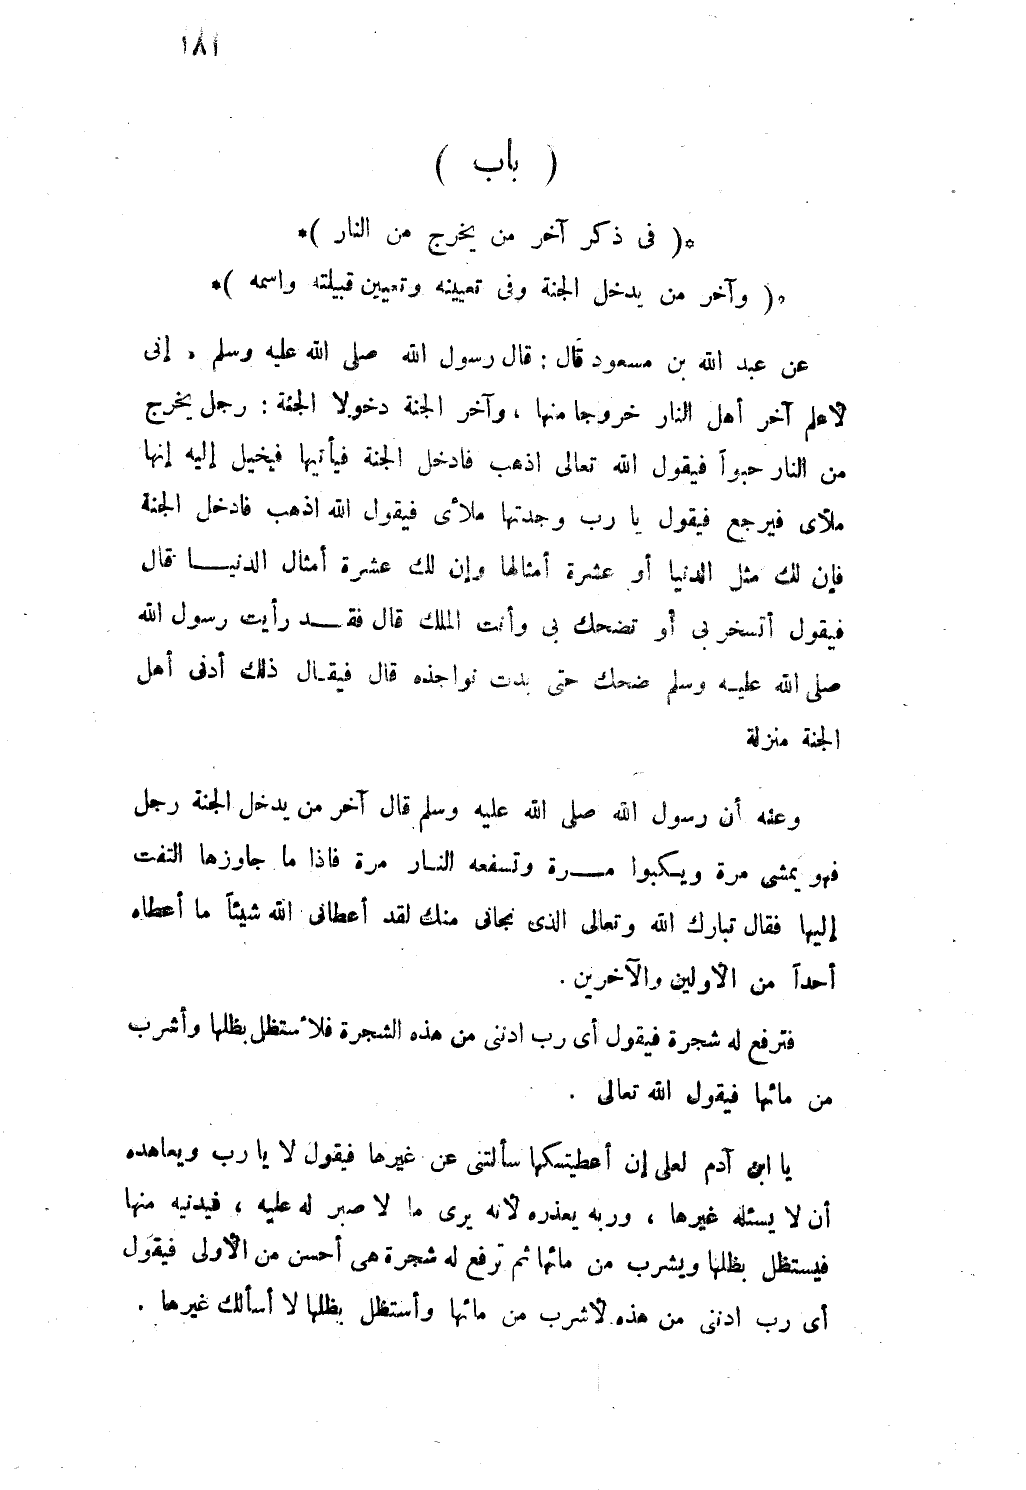 ١٨١
( باب )
*( فى ذكر آخر من يخرج من النار )*
*( وآخر من يدخل الجنة وفى تعيينه وتعيين قبيلته واسمه )*
عن عبد الله بن مسعود قال : قال رسول الله صلى الله عليه وسلم . إنى
لأعلم آخر أهل النار خروجا منها ، وآخر الجنة دخولا الجنة : رجل يخرج
من النار حبواً فيقول الله تعالى اذهب فادخل الجنة فيأتيها فيخيل إليه إنها
ملآى فيرجع فيقول يا رب وجدتها ملأى فيقول الله اذهب فادخل الجنة
فإن لك مثل الدنيا أو عشرة أمثالها وإن لك عشرة أمثال الدنيـــا قال
فيقول أتسخر بى أو تضحك بى وأنت الملك قال فقـــد رأيت رسول الله
صلى الله عليـه وسلم ضحك حتى بدت نواجذه قال فيقـال ذلك أدنى أهل
الجنة منزلة
وعنه أن رسول الله صلى الله عليه وسلم قال آخر من يدخل الجنة رجل
فهو يمشى مرة ويـكبوا مـــرة وتسفعه النـار مرة فاذا ما جاوزها التفت
إليها فقال تبارك الله وتعالى الذى نجانى منك لقد أعطانى الله شيئاً ما أعطاه
أحداً من الأولين والآخرين .
فترفع له شجرة فيقول أى رب ادننى من هذه الشجرة فلأستظل بظلها وأشرب
من مائها فيقول الله تعالى .
يا ابن آدم لعلى إن أعطيتسكها سألتنى عن غيرها فيقول لا يا رب ويعاهده
أن لا يسئله غيرها ، وربه يعذره لأنه يرى ما لا صبر له عليه ، فيدنيه منها
فيستظل بظلها ويشرب من مائها ثم ترفع له شجرة هى أحسن من الأولى فيقول
أى رب ادننى من هذه لأشرب من مائها وأستظل بظلها لا أسألك غيرها .